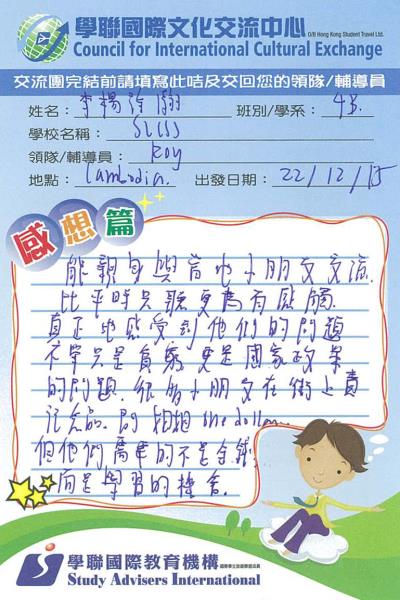 學聯國際文化交流中心
O/B Hong Kong Student Travel Ltd.
Council for International Cultural Exchange
交流團完結前請填寫此咭及交回您的領隊/輔導員
姓名： 李楊 班別/學系： 4B.
學校名稱：
領隊/輔導員： Roy
地點： Cambodia. 出發日期： 22/12/15
感想篇
能親身與當地小朋友交流,
比平時只聽更為有感觸,
真正地感受到他們的問題
不單只是貧窮更是國家政策
的問題. 很多小朋友在街上賣
紀念品. 問 one dollar...
但他們需要的不是金錢,
而是學習的機會.
學聯國際教育機構
Study Advisers International